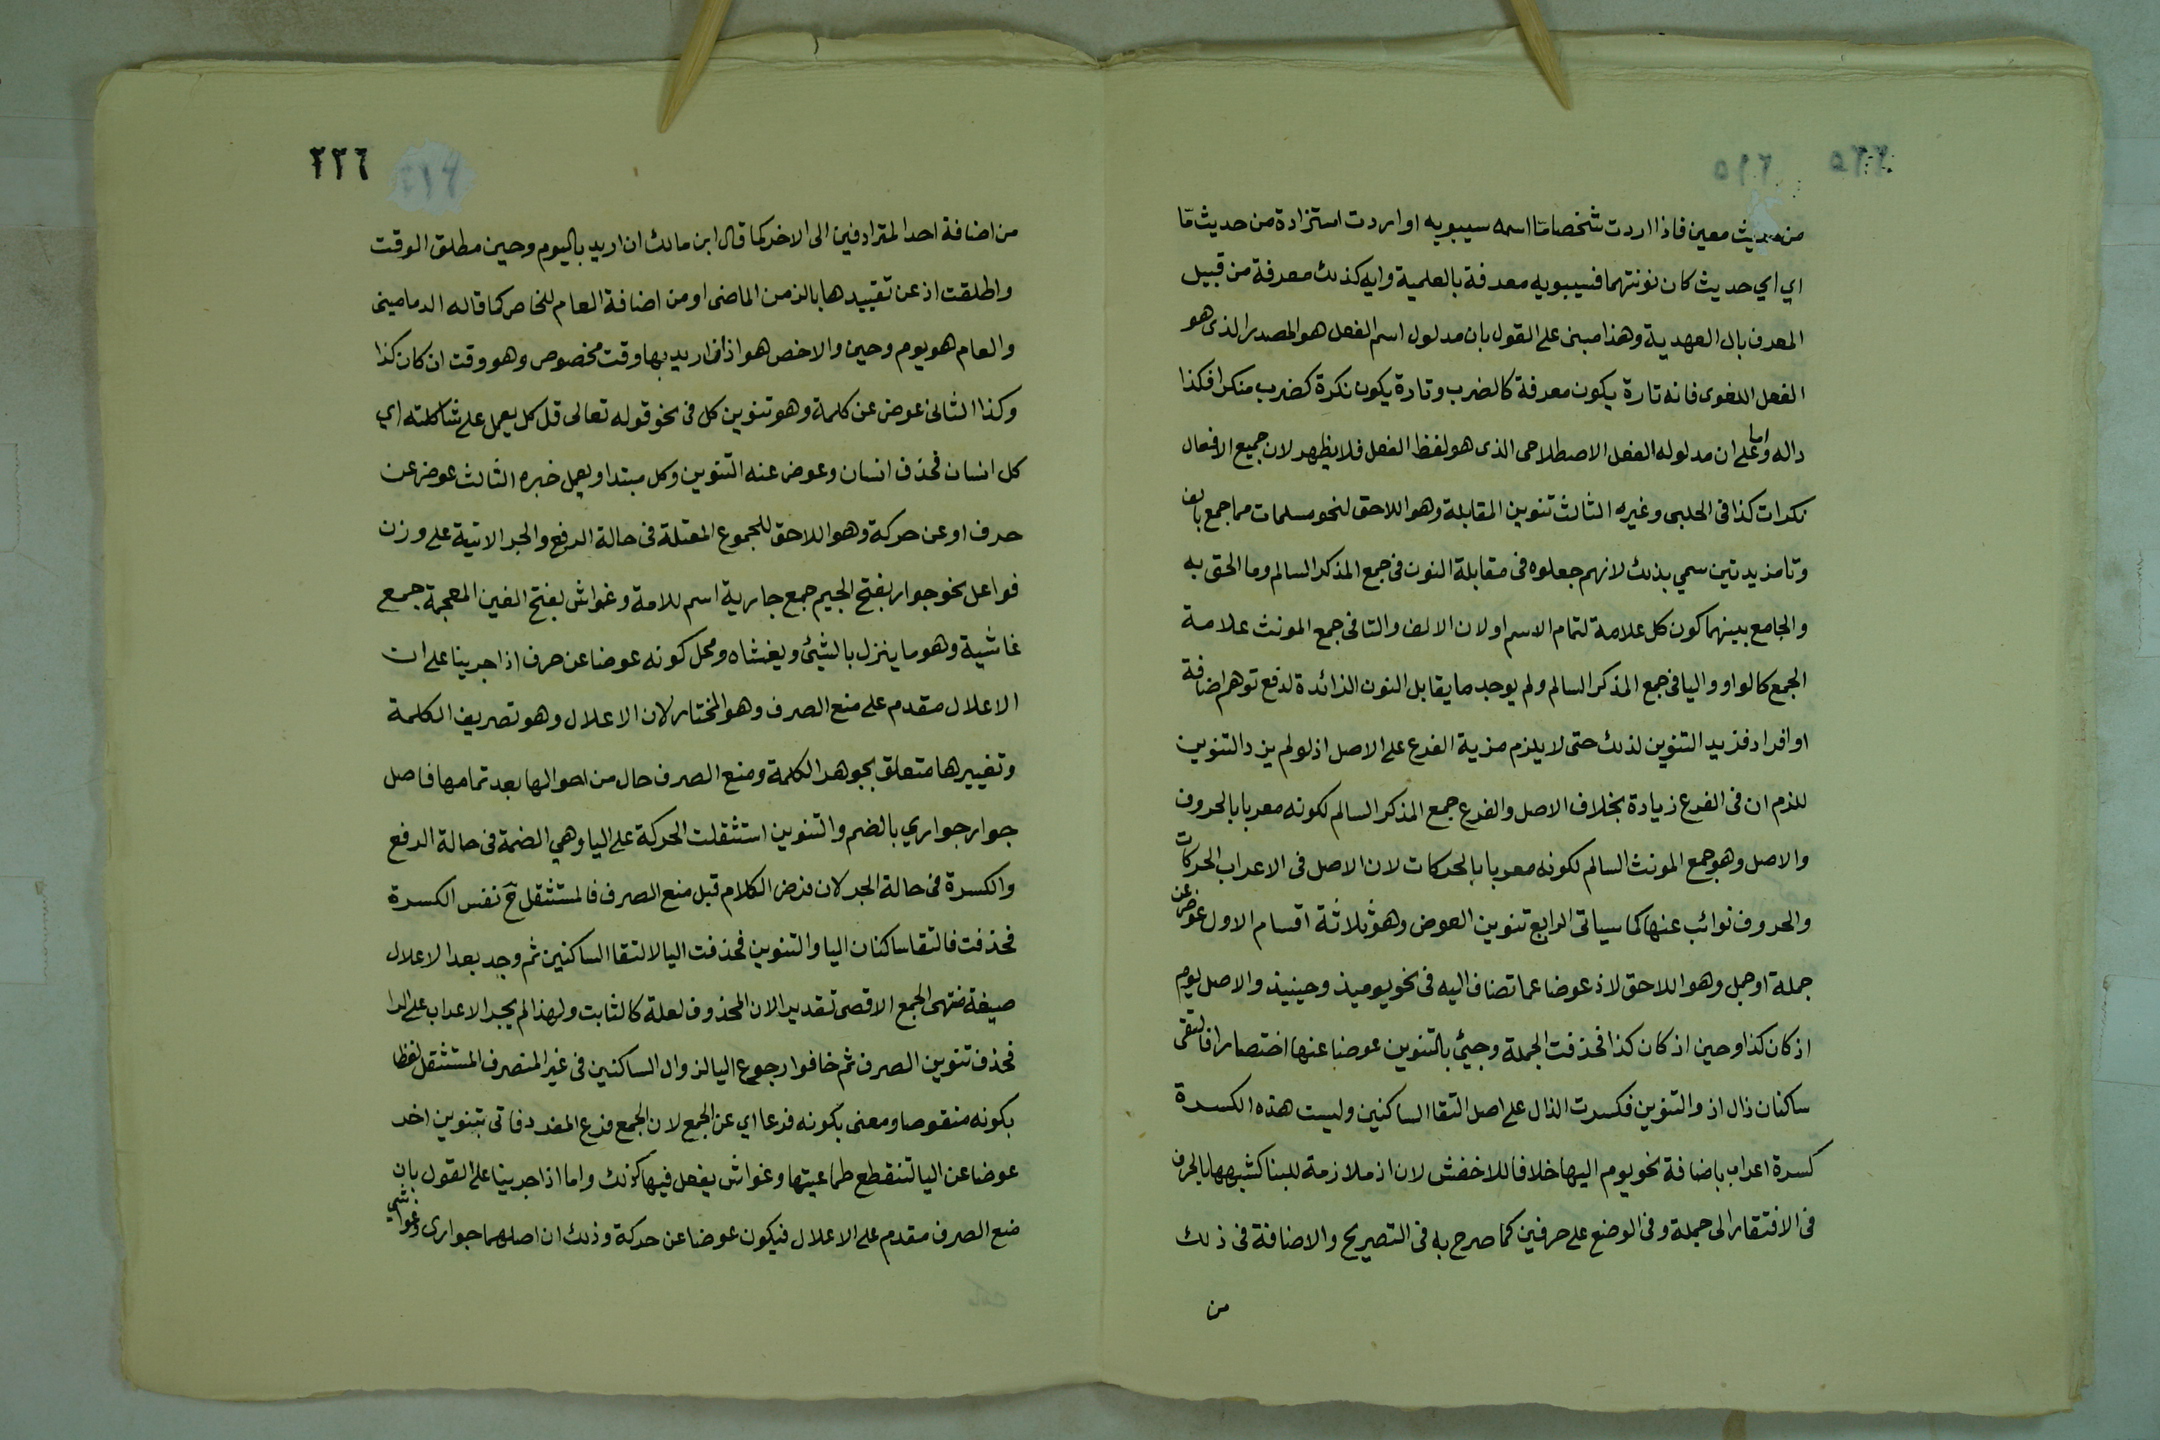 من حديث معين فاذا اردت شخصا مّا اسمه سيبويه او اردت استزادة من حديث مّا
اي اي حديث كان نونتهما فسيبويه معرفة بالعلمية وايه كذلك معرفة من قبيل
المعرف بال العهدية وهذا مبنى على القول بان مدلول اسم الفعل هو المصدر الذى هو
الفعل اللغوى فانه تارة يكون معرفة كالضرب وتارة يكون نكرة كضرب منكرا فكذا
داله واما على ان مدلوله الفعل الاصطلاحى الذى هو لفظ الفعل فلا يظهر لان جميع الافعال
نكرات كذا فى الحلبى وغيره الثالث تنوين المقابلة وهو اللاحق لنحو مسلمات مما جمع بالف
وتا مزيدتين سمي بذلك لانهم جعلوه فى مقابلة النون فى جمع المذكر السالم وما الحق به
والجامع بينهما كون كل علامة لتمام الاسم او لان الالف والتا فى جمع المونث علامة
الجمع كالواو واليا فى جمع المذكر السالم ولم يوجد ما يقابل النون الزائدة لدفع توهم اضافة
او افراد فزيد التنوين لذلك حتى لا يلزم مزية الفرع على الاصل اذ لو لم يزد التنوين
للزم ان فى الفرع زيادة بخلاف الاصل والفرع جمع المذكر السالم لكونه معربا بالحروف
والاصل وهو جمع المونث السالم لكونه معربا بالحركات لان الاصل فى الاعراب الحركات
والحروف نوائب عنها كما سياتى الرابع تنوين العوض وهو ثلاثة اقسام الاول عوض عن
جملة او جمل وهو اللاحق لاذ عوضا عما تضاف اليه فى نحو يوميذ وحينيذ والاصل يوم
اذ كان كذا وحين اذ كان كذا فحذفت الجملة وجيئ بالتنوين عوضا عنها اختصارا فالتقى
ساكنان ذال اذ والتنوين فكسرت الذال على اصل التقا الساكنين وليست هذه الكسرة
كسرة اعراب باضافة نحو يوم اليها خلافا للاخفش لان اذ ملازمة للبنا كشبهها بالحرف
فى الافتقار الى جملة وفى الوضع على حرفين كما صرح به فى التصريح والاضافة فى ذلك
من
٢٢٦
من اضافة احد المترادفين الى الاخر كما قال ابن مالك ان اريد باليوم وحين مطلق الوقت
واطلقت اذ عن تقييدها بالزمن الماضى او من اضافة العام للخاص كما قاله الدمامينى
والعام هو يوم وحين والاخص هو اذ اريد بها وقت مخصوص وهو وقت ان كان كذا
وكذا الثانى عوض عن كلمة وهو تنوين كل فى نحو قوله تعالى قل كل يعمل على شاكلته اي
كل انسان فحذف انسان وعوض عنه التنوين وكل مبتدا ويعمل خبره الثالث عوض عن
حرف او عن حركة وهو اللاحق للجموع المعتلة فى حالة الرفع والجر الاتية على وزن
فواعل نحو جوار بفتح الجيم جمع جارية اسم للامة وغواش بفتح الغين المعجمة جمع
غاشية وهو ما ينزل بالشيئ ويغشاه ومحل كونه عوضا عن حرف اذا جرينا على ان
الاعلال مقدم على منع الصرف وهو المختار لان الاعلال وهو تصريف الكلمة
وتغييرها متعلق بجوهر الكلمة ومنع الصرف حال من احوالها بعد تمامها فاصل
جوار جواري بالضم والتنوين استثقلت الحركة على اليا وهي الضمة فى حالة الرفع
والكسرة فى حالة الجر لان فرض الكلام قبل منع الصرف فالمستثقل ح نفس الكسرة
فحذفت فالتقا ساكنان اليا والتنوين فحذفت اليا لالتقا الساكنين ثم وجد بعد الاعلال
صيغة منتهى الجمع الاقصى تقديرا لان المحذوف لعلة كالثابت ولهذا لم يجر الاعراب على الرا
فحذف تنوين الصرف ثم خافوا رجوع اليا لزوال الساكنين فى غير المنصرف المستثقل لفظا
بكونه منقوصا ومعنى بكونه فرعا اي عن الجمع لان الجمع فرع المفرد فاتى بتنوين اخر
عوضا عن اليا لتنقطع طماعيتها وغواش يفعل فيها كذلك واما اذا جرينا على القول بان
منع الصرف مقدم على الاعلال فيكون عوضا عن حركة وذلك ان اصلهما جوارى وغواشي